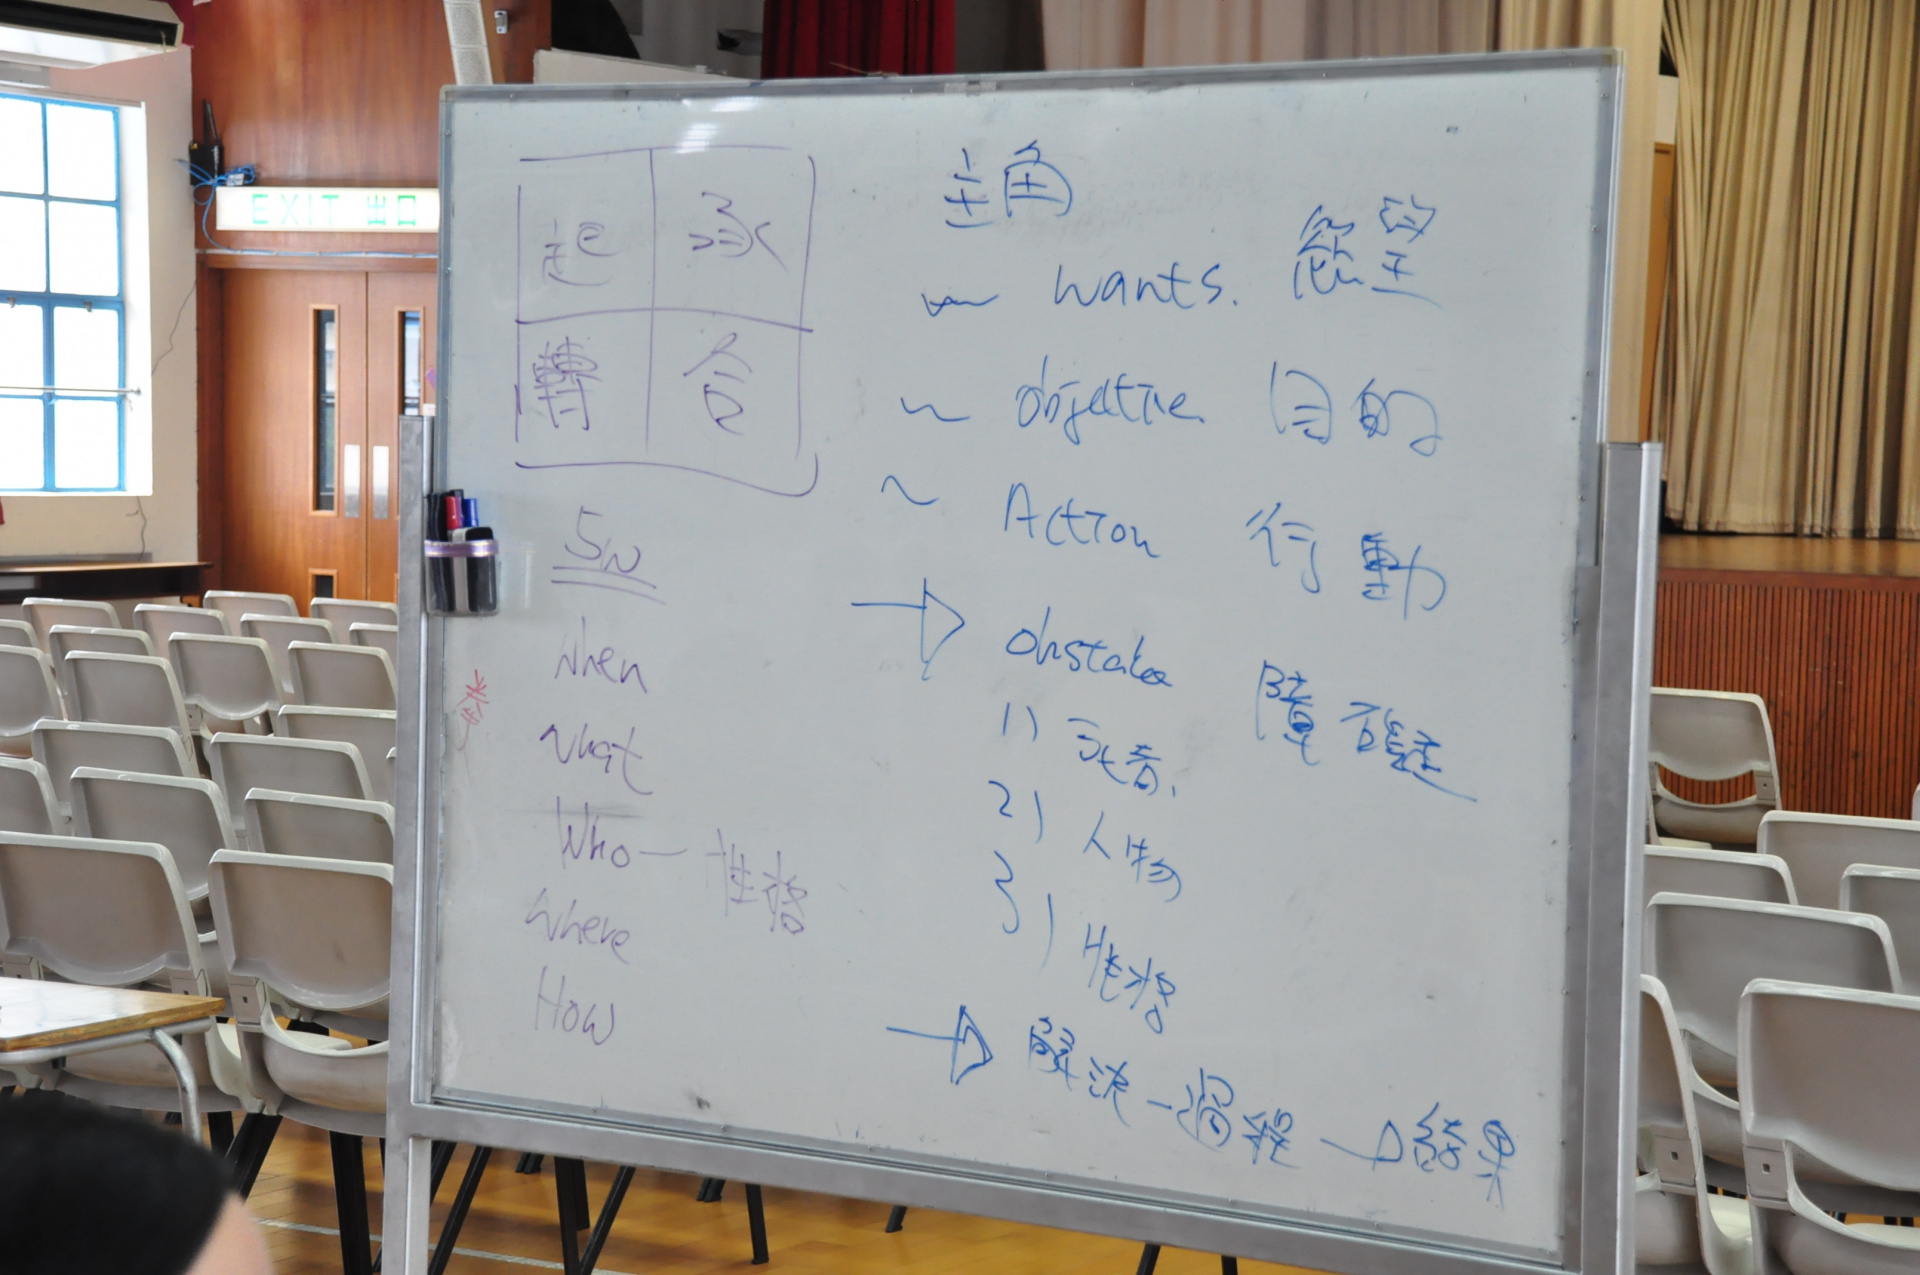 EXIT 出口
起 承
轉 合
5W
When
What
Who — 性格
Where
How
主角
~ wants. 慾望
~ objective 目的
~ Action 行動
→ obstacle 障礙
1)
2) 人物
3) 性格
→ 解決 - 過程 → 結果